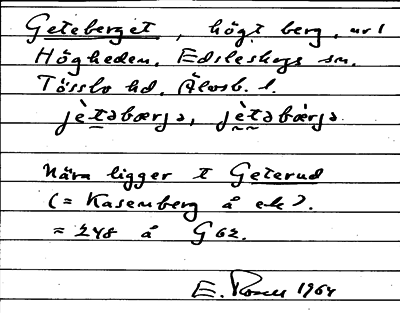 Geteberget, högt berg, nr 1
Högheden, Edsleskogs sn.
Tössbo hd. Älvsb. l.
jètəbærjə, jètəbærjə.
Nära ligger t Geterud
(= Kasenberg å ek).
= 248 å G62.
E. Rosell 1964